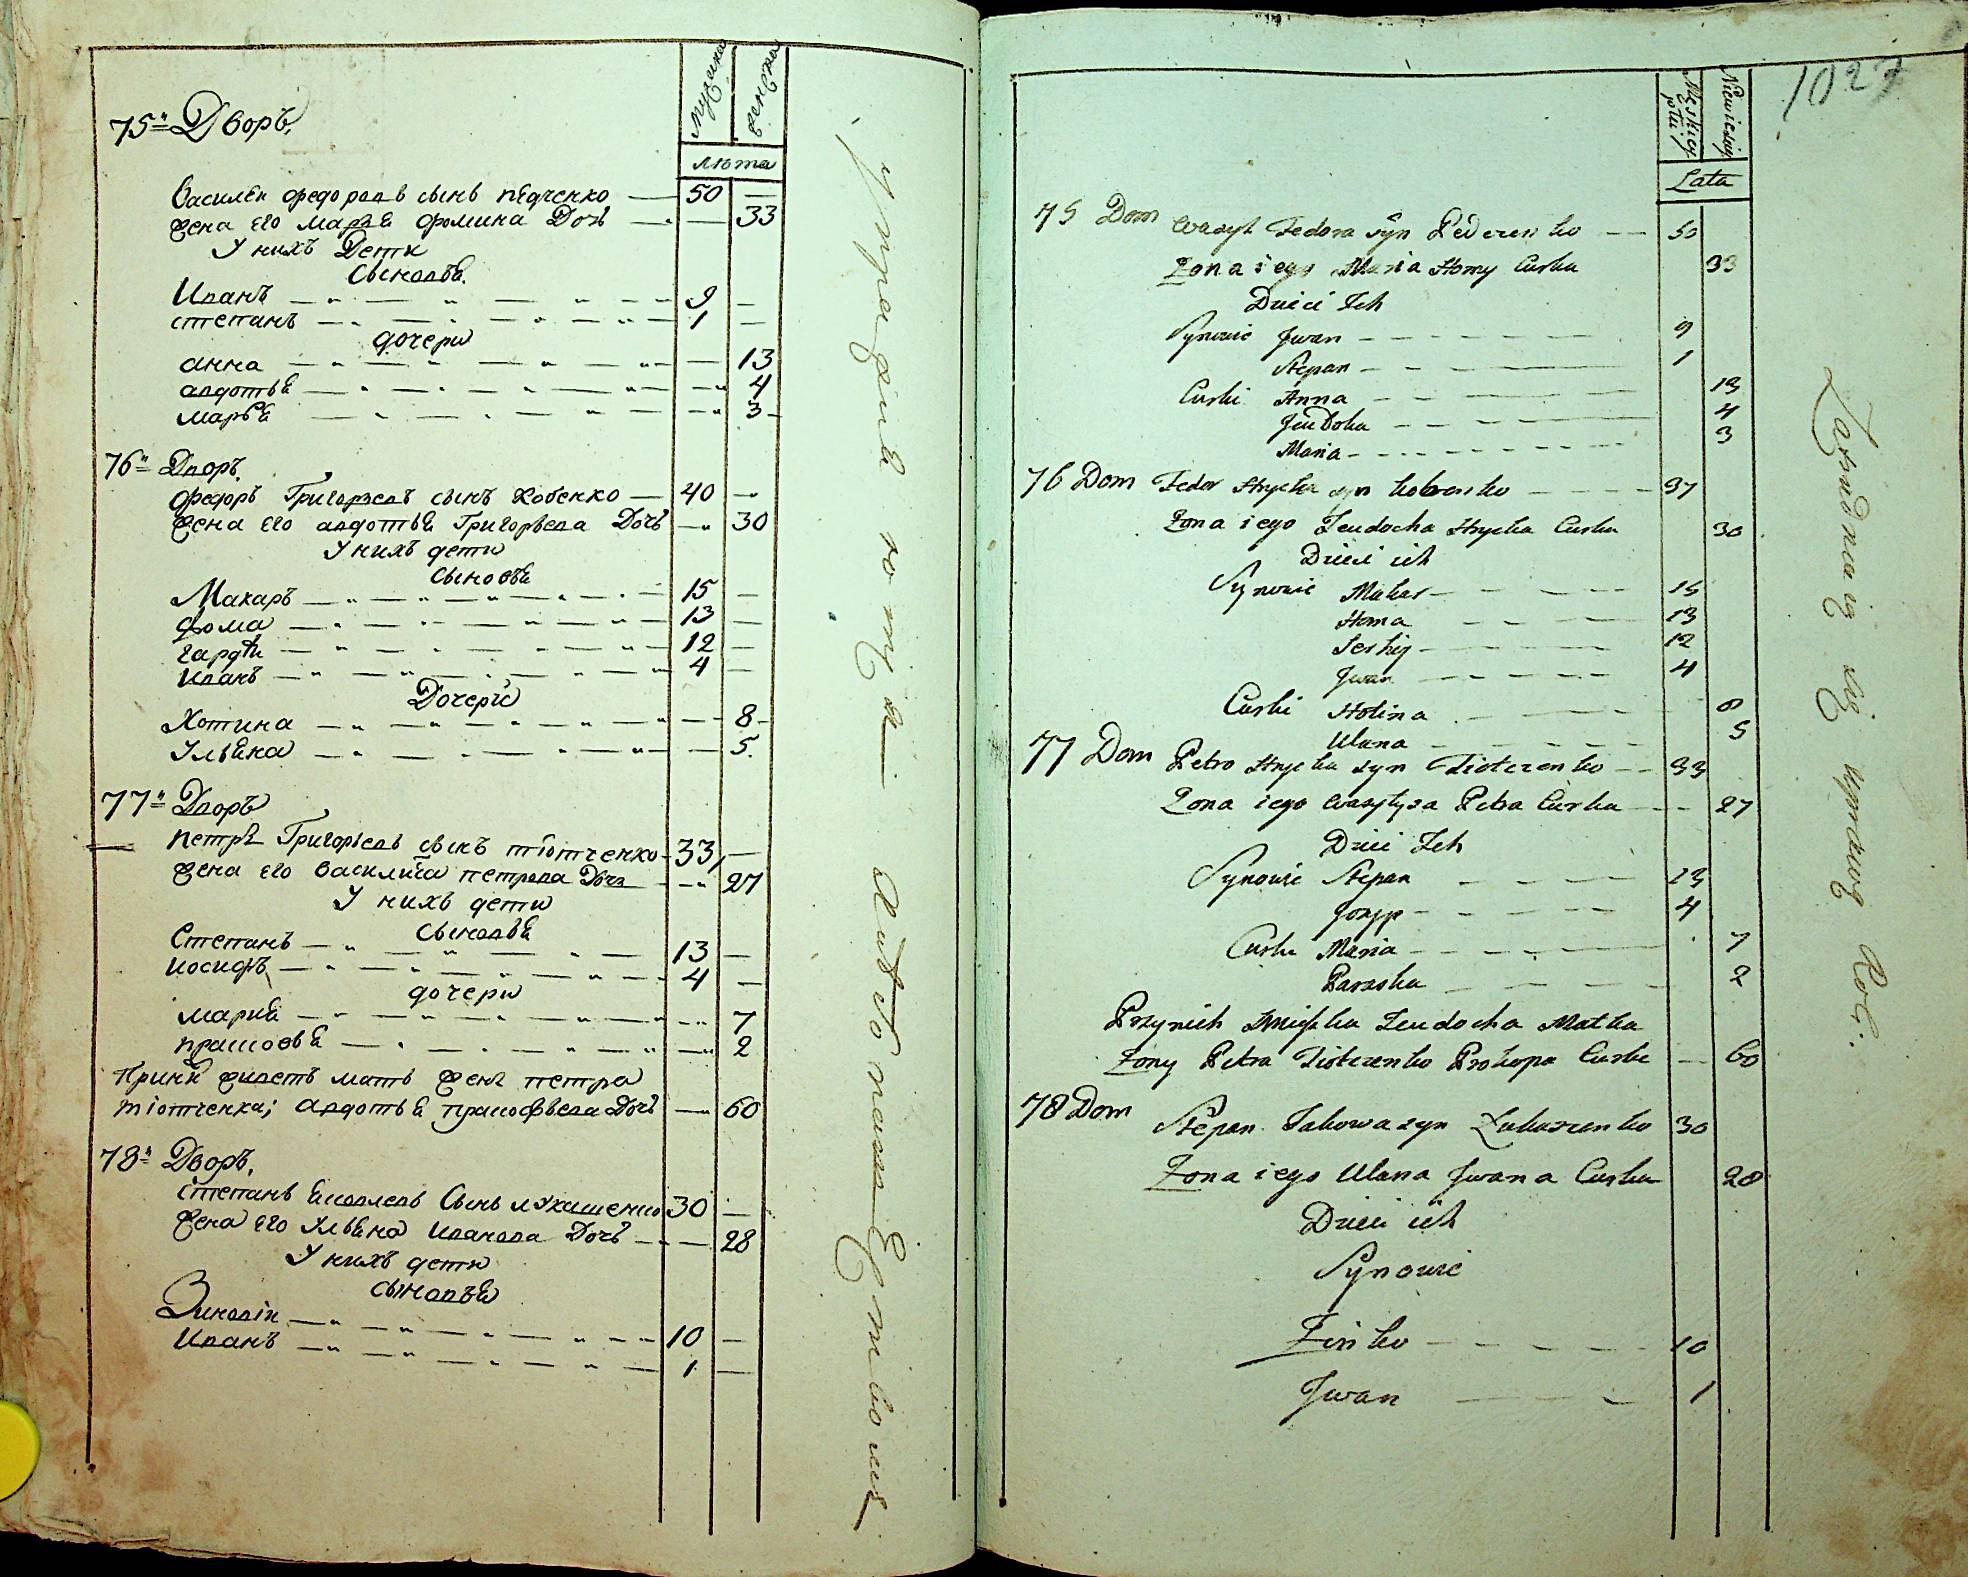 мужска
женска
лѣта
75й Дворъ.
Василѣй федоровъ сынъ педченко — 50 —
жена его марья фомина Дочь — — 33
У нихъ Дети
Сыновья.
Иванъ 9 —
степанъ 1 —
дочери
анна — 13
авдотья — 4
марья — 3
76й Дворъ.
федоръ Григорьевъ сынъ кобенко — 40 —
жена его авдотья Григорьева Дочь — 30
У нихъ дети
сыновья
Макаръ 15 —
фома 13 —
12 —
Иванъ 4 —
Дочери
Хотина — 8
Ульяна — 5.
77й Дворъ
петръ Григорьевъ сынъ тіотченко 33, —
жена его василиса петрова Дочь — 27
У нихъ дети
сыновья
Степанъ 13 —
иосифъ 4 —
дочери
мария — 7
прасковья — 2
При ней живетъ мать жены петра
тіотченка; авдотья прокофьева Дочь — 60
78й Дворъ.
степанъ яковлевъ Сынъ лукашенко 30 —
жена его Ульяна иванова Дочь — 28
У нихъ дети
сыновья
Зиновій 10 —
Иванъ 1 —
упражнѧ
1027
Męskiey płci
Niewiesciey
Lata
75 Dom Wasyl Fedora syn Pedczenko — 50
Żona iego Maria Homy Curka 33
Dzieci Ich
Synowie Jwan 9
Stepan 1
Curki Anna 13
Jeudoha 4
Maria 3
76 Dom Fedor Hryćka syn kobenko 37
Żona iego Jeudocha Hryćka Curka 30
Dzieci ich
Synowie Makar 15
Homa 13
Serhiy 12
Jwan 4
Curki Hotina 8
Ulana 5
77 Dom Petro Hryćka syn Tiotczenko 33
Żona iego Wasylysa Petra Curka 27
Dzieci Ich
Synowie Stepan 13
Jozyp 4
Curki Maria 7
Paraska 2
Przynich Mieszka Jeudocha Matka
Żony Petra Tiotczenko Prokopa Curka 60
78 Dom Stepan Jakowa syn Łukaszenko 30
Żona iego Ulana Jwana Curka 28
Dzieci ich
Synowie
Zinko 10
Jwan 1
Zatrudnaią się uprawą Roli.